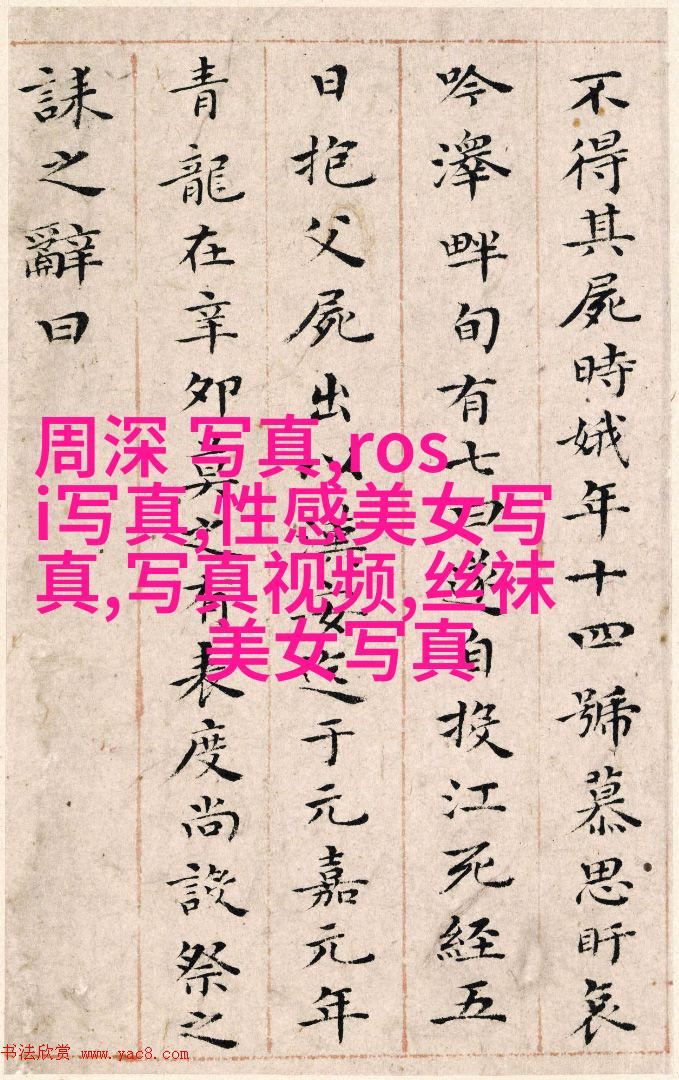 不得其屍時娥年十四號慕思盱哀
吟澤畔旬有七日遂自投江死經五
日抱父屍出以漢安迄于元嘉元年
青龍在辛卯莫之有表度尚設祭之
誄之辭曰
周深 写真,ros
i写真,性感美女写
真,写真视频,丝袜
美女写真
书法欣赏 www.yac8.com